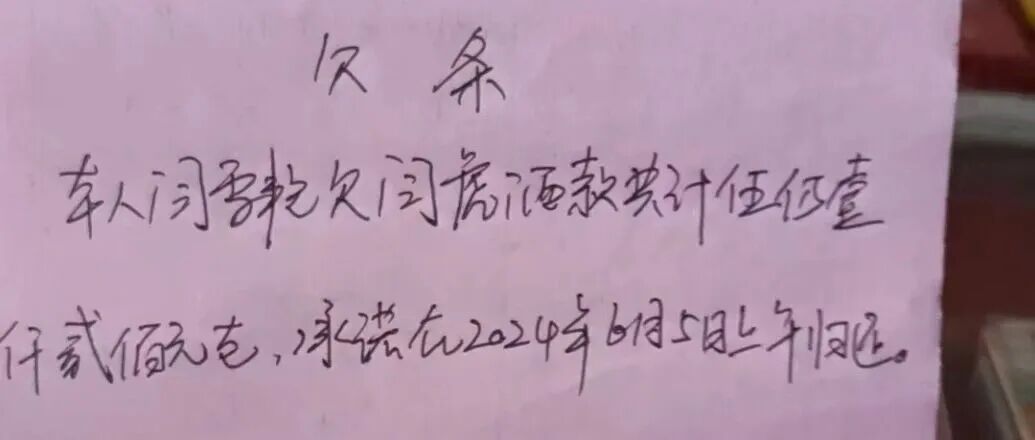 欠条
本人闫欠闫虎酒款共计伍壹
仟贰佰元,承诺在2024年6月5日上午归还。